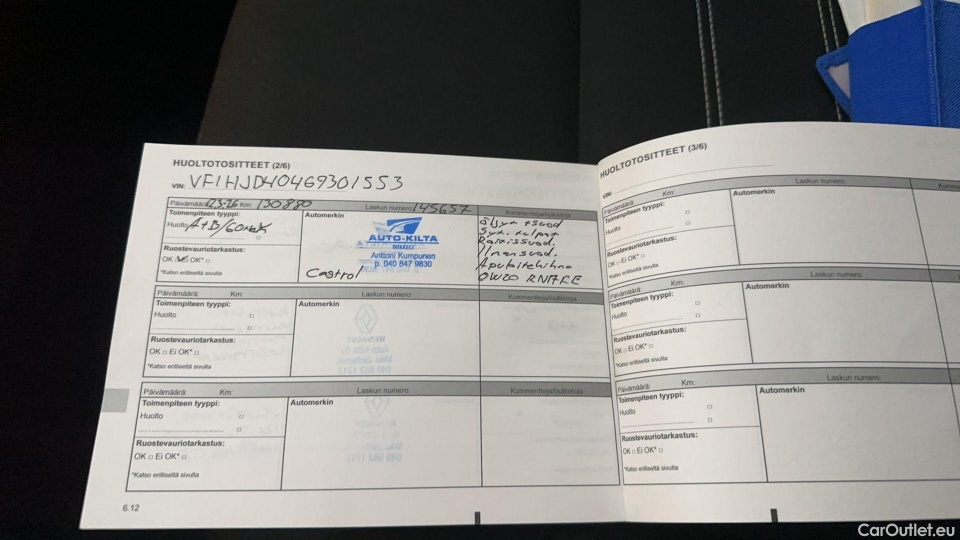 HUOLTOTOSITTEET (2/6)
VIN: VF1HJD40469301553
Päivämäärä: Km: 130880 Laskun numero: 145657 Kommentteja/lisätietoja
Toimenpiteen tyyppi:
Huolto A+B/60
Ruostevauriotarkastus:
OK Ei OK*
*Katso erilliseltä sivulta
Automerkin
AUTO-KILTA
RENAULT
Anttoni Kumpunen
p. 040 847 9830
Castrol
Raitissuod.
Ilmansuod.
Apulaitehihna
0W20 RN17FE
Päivämäärä: Km: Laskun numero: Kommentteja/lisätietoja
Toimenpiteen tyyppi:
Huolto
Ruostevauriotarkastus:
OK Ei OK*
*Katso erilliseltä sivulta
Automerkin
Päivämäärä: Km: Laskun numero: Kommentteja/lisätietoja
Toimenpiteen tyyppi:
Huolto
Ruostevauriotarkastus:
OK Ei OK*
*Katso erilliseltä sivulta
Automerkin
6.12
HUOLTOTOSITTEET (3/6)
VIN:
Päivämäärä: Km: Laskun numero
Toimenpiteen tyyppi:
Huolto
Ruostevauriotarkastus:
OK Ei OK*
*Katso erilliseltä sivulta
Automerkin
Päivämäärä: Km: Laskun numero:
Toimenpiteen tyyppi:
Huolto
Ruostevauriotarkastus:
OK Ei OK*
*Katso erilliseltä sivulta
Automerkin
Päivämäärä: Km: Laskun numero:
Toimenpiteen tyyppi:
Huolto
Ruostevauriotarkastus:
OK Ei OK*
*Katso erilliseltä sivulta
Automerkin
CarOutlet.eu